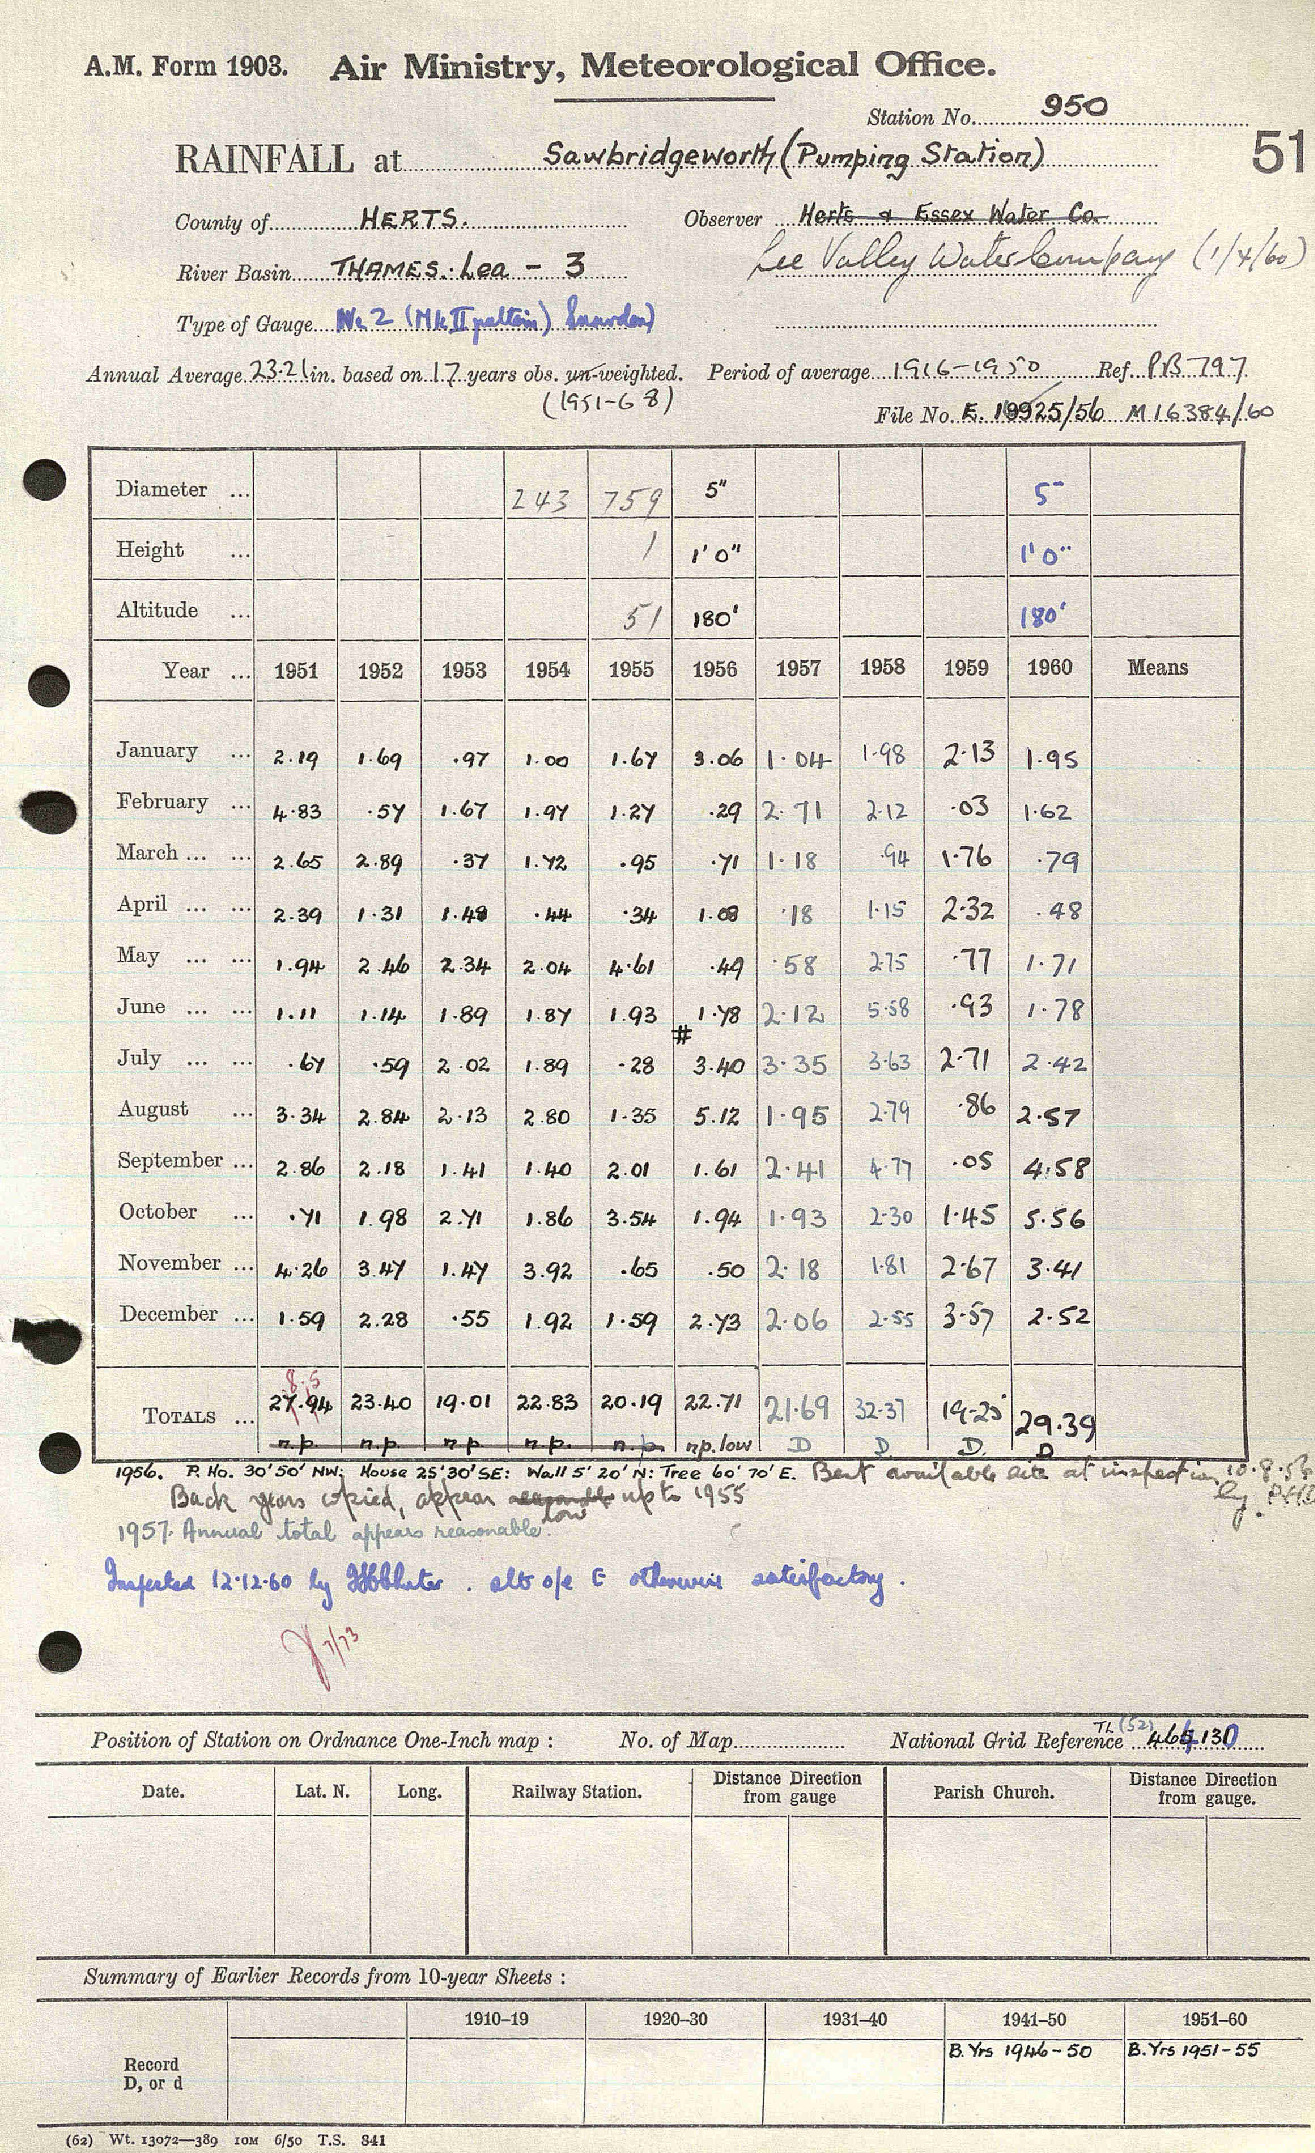 A.M. Form 1903. Air Ministry, Meteorological Office.
Station No. 950
51
RAINFALL at Sawbridgeworth (Pumping Station)
County of HERTS. Observer Herts & Essex Water Co.
River Basin THAMES. Lea - 3 Lee Valley Water Company (1/4/60)
Type of Gauge No 2 (Mk II pattern) Snowdon
Annual Average 23.21 in. based on 17 years obs. un-weighted. Period of average 1916-1950 Ref. PB 797
(1951-68)
File No. E. 19925/56 M16384/60
Diameter ... 243 759 5" 5"
Height ... 1 1'0" 1'0"
Altitude ... 51 180' 180'
Year ... 1951 1952 1953 1954 1955 1956 1957 1958 1959 1960 Means
January ... 2.19 1.69 .97 1.00 1.67 3.06 1.04 1.98 2.13 1.95
February ... 4.83 .57 1.67 1.97 1.27 .29 2.71 2.12 .03 1.62
March ... ... 2.65 2.89 .37 1.72 .95 .71 1.18 .94 1.76 .79
April ... ... 2.39 1.31 1.48 .44 .34 1.08 .18 1.15 2.32 .48
May ... ... 1.94 2.46 2.34 2.04 4.61 .49 .58 2.75 .77 1.71
June ... ... 1.11 1.14 1.89 1.87 1.93 1.78 2.12 5.58 .93 1.78
#
July ... ... .67 .59 2.02 1.89 .28 3.40 3.35 3.63 2.71 2.42
August ... 3.34 2.84 2.13 2.80 1.35 5.12 1.95 2.79 .86 2.57
September ... 2.86 2.18 1.41 1.40 2.01 1.61 2.41 4.77 .05 4.58
October ... .71 1.98 2.71 1.86 3.54 1.94 1.93 2.30 1.45 5.56
November ... 4.26 3.47 1.47 3.92 .65 .50 2.18 1.81 2.67 3.41
December ... 1.59 2.28 .55 1.92 1.59 2.73 2.06 2.55 3.57 2.52
8.5
TOTALS ... 27.94 23.40 19.01 22.83 20.19 22.71 21.69 32.37 19.25 29.39
n.p. n.p. n.p. n.p. n.p. n.p. low D D. D. D
1956. P. Ho. 30'50' NW: House 25'30' SE: Wall 5'20' N: Tree 60'70' E. Best available site at inspection 10.8.56
Back years copied, appear reasonable low up to 1955 by
1957. Annual total appears reasonable.
Inspected 12.12.60 by . alt o/e E otherwise satisfactory.
7/73
Position of Station on Ordnance One-Inch map : No. of Map National Grid Reference TL (52) 464130
Date. Lat. N. Long. Railway Station. Distance Direction from gauge Parish Church. Distance Direction from gauge.
Summary of Earlier Records from 10-year Sheets :
1910–19 1920–30 1931–40 1941–50 1951–60
Record D, or d B. Yrs 1946-50 B. Yrs 1951-55
(62) Wt. 13072—389 10M 6/50 T.S. 841